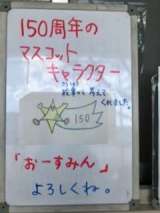 150周年の
マスコット
キャラクター
考えて
くれました。
150
「おーすみん」
よろしくね。